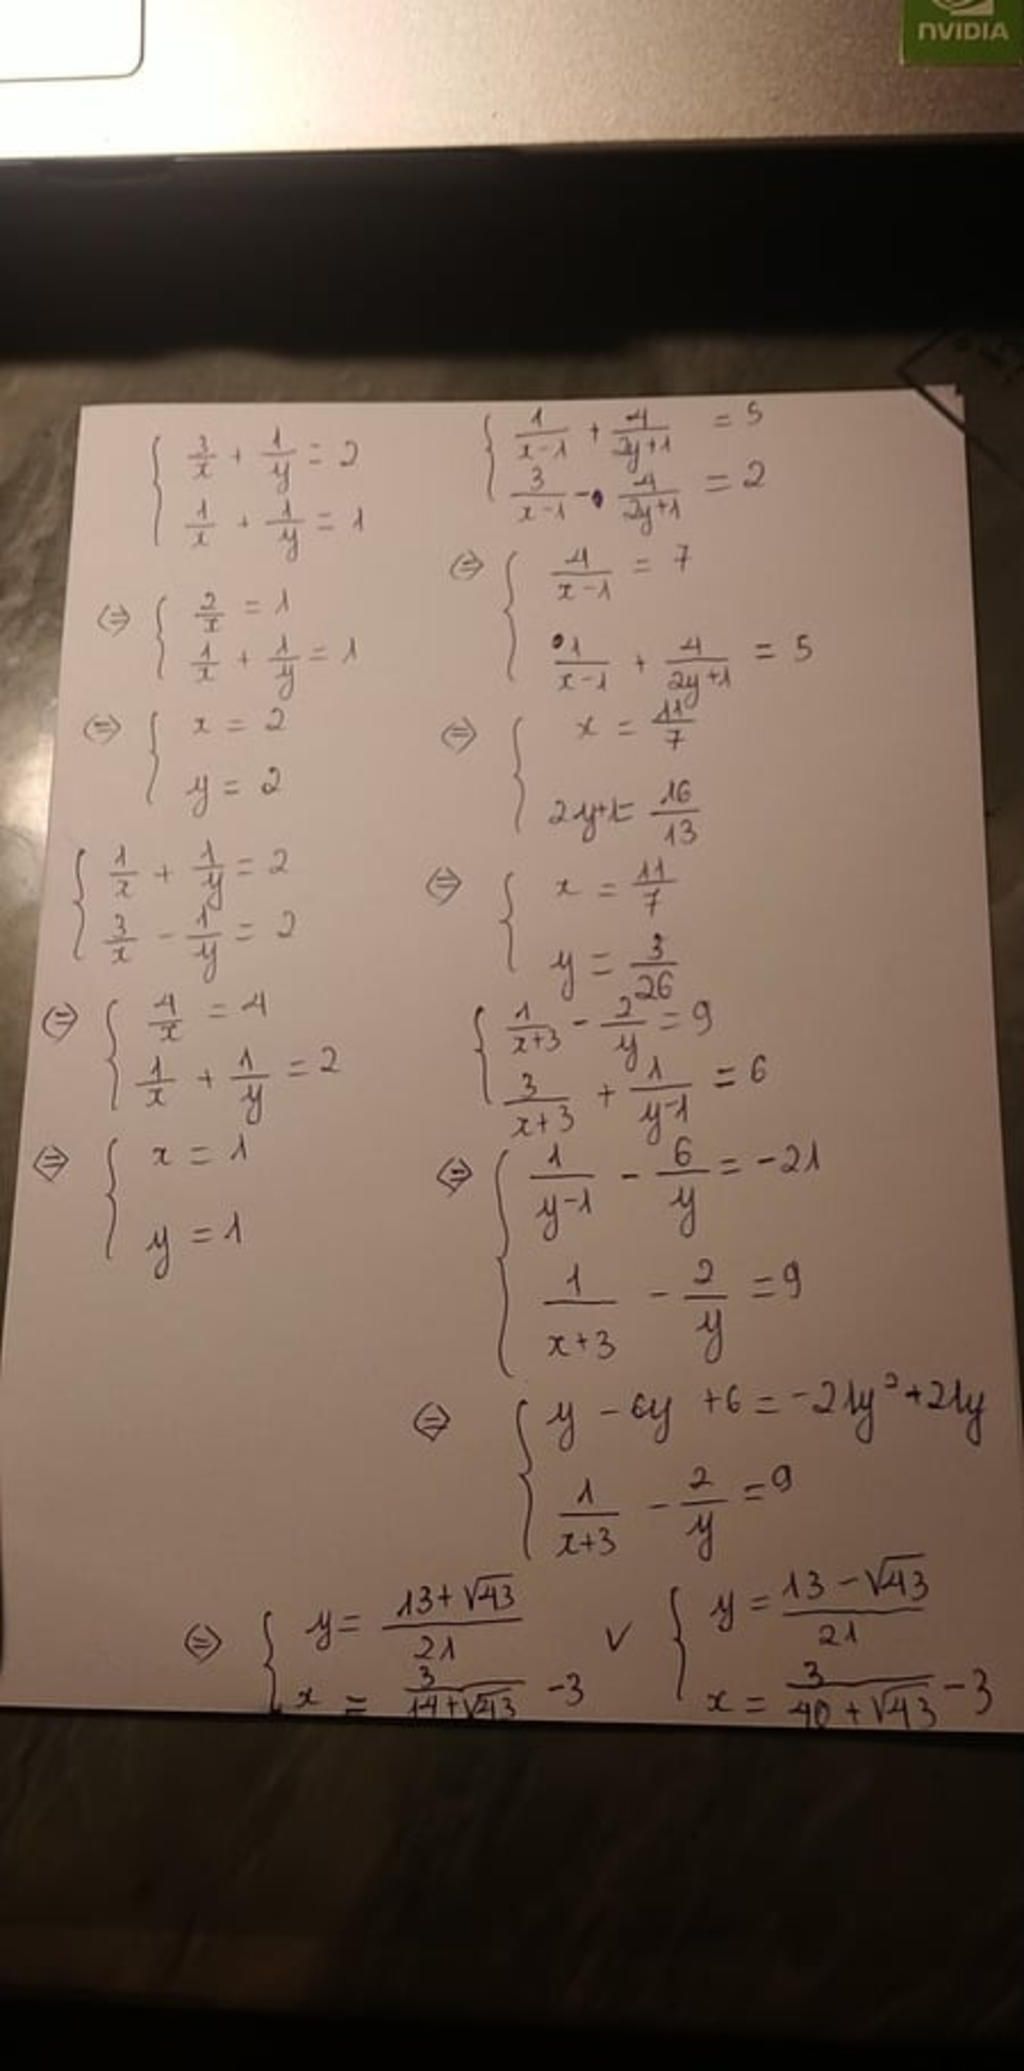 NVIDIA
{ 3/x + 1/y = 2
1/x + 1/y = 1
⇔ { 2/x = 1
1/x + 1/y = 1
⇔ { x = 2
y = 2
{ 1/x + 1/y = 2
3/x - 1/y = 2
⇔ { 4/x = 4
1/x + 1/y = 2
⇔ { x = 1
y = 1
{ 1/(x-1) + 4/(2y+1) = 5
3/(x-1) - 4/(2y+1) = 2
⇔ { 4/(x-1) = 7
1/(x-1) + 4/(2y+1) = 5
⇔ { x = 11/7
2y+1 = 16/13
⇔ { x = 11/7
y = 3/26
{ 1/(x+3) - 2/y = 9
3/(x+3) + 1/(y-1) = 6
⇔ { 1/(y-1) - 6/y = -21
1/(x+3) - 2/y = 9
⇔ { y - 6y + 6 = -21y² + 21y
1/(x+3) - 2/y = 9
⇔ { y = (13+√43)/21 ∨ { y = (13-√43)/21
x = 3/(14+√43) - 3 x = 3/(40+√43) - 3